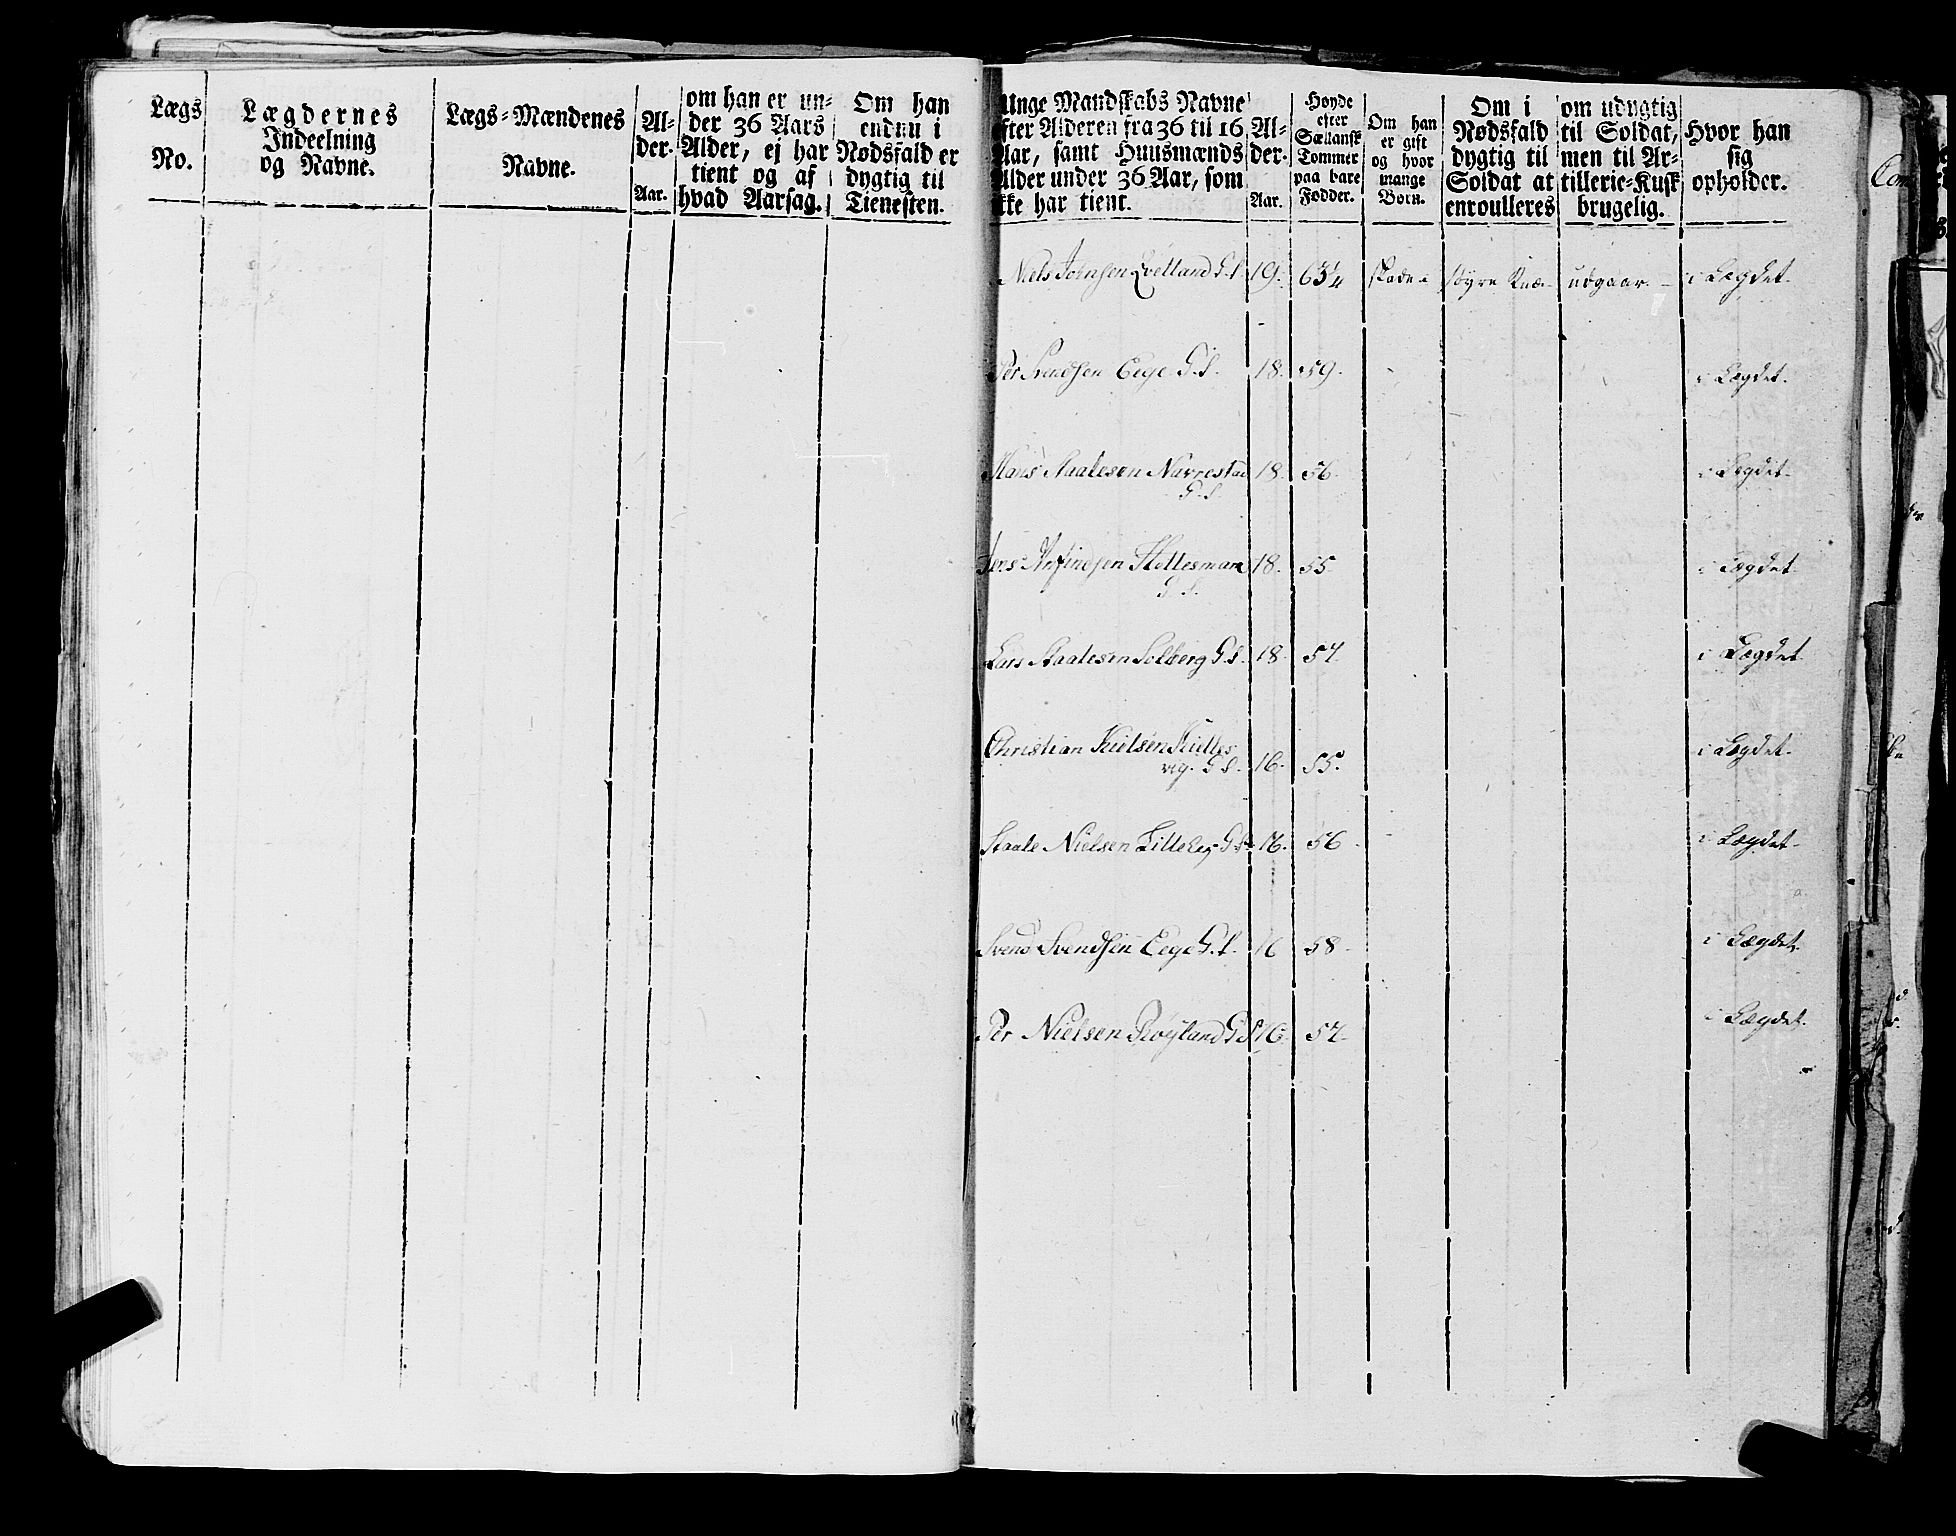 Lægs
No.
Lægdernes
Indeelning
og Navne.
Lægs-Mændenes
Navne.
Al-
der.
Aar.
om han er un-
der 36 Aars
Alder, ej har
tient og af
hvad Aarsag.
Om han
endnu i
Nødsfald er
dygtig til
Tienesten.
Unge Mandskabs Navne
efter Alderen fra 36 til 16
Aar, samt Huusmænds
Alder under 36 Aar, som
ikke har tient.
Al-
der.
Aar.
Høyde
efter
Sællansk
Tommer
paa bare
Fødder.
Om han
er gift
og hvor
mange
Børn.
Om i
Nødsfald
dygtig til
Soldat at
enroulleres
om udygtig
til Soldat,
men til Ar-
tillerie-Kusk
brugelig.
Hvor han
sig
opholder.
Niels Johnsen G.S. 19. 63¼ skade i høyre Knæ udgaar. i Lægdet.
Per Svendsen Eege G.S. 18. 59. i Lægdet.
Hans Staalesen Navrestad 18. 56. i Lægdet.
G.S.
Jens Anfindsen 18. 55 i Lægdet.
G.S.
Lars Staalesen Solberg G.S. 18. 57. i Lægdet.
Christian i Lægdet.
vig. G.S. 16. 55.
Staale Nielsen G.S. 16. 56 i Lægdet.
Svend Svendsen Eege G.S. 16 58. i Lægdet.
Per Nielsen Røyland G.S. 16. 57. i Lægdet.